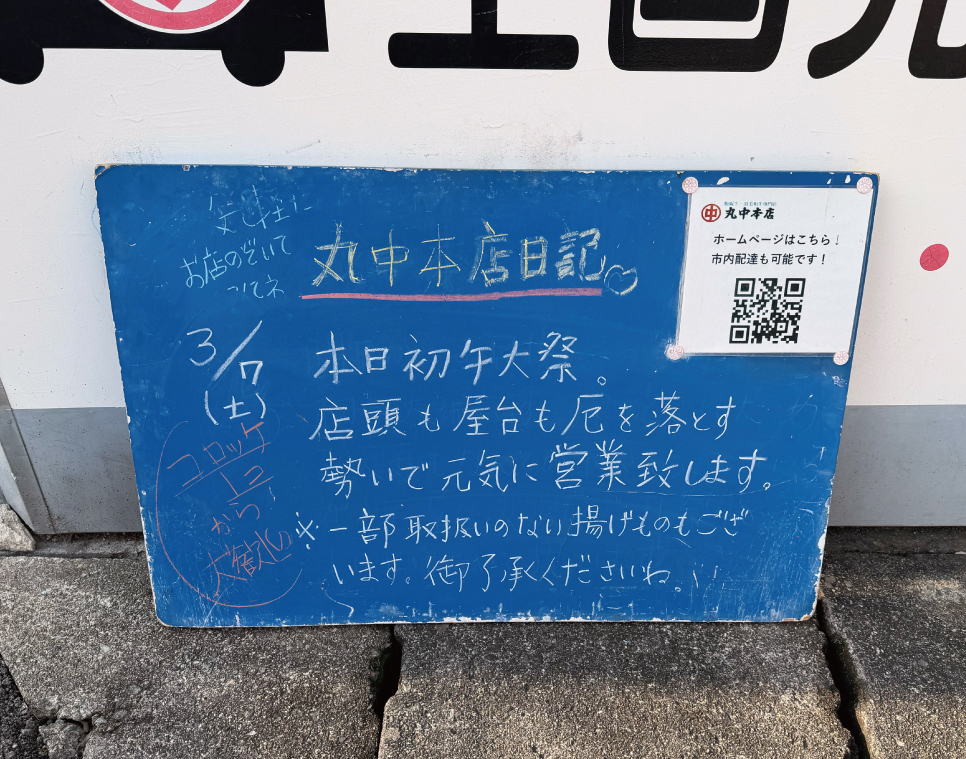 気軽に
お店のぞいて
ってネ
丸中本店日記
3/7
(土)
本日初午大祭。
店頭も屋台も厄を落とす
勢いで元気に営業致します。
※一部取扱いのない揚げものもござ
います。御了承くださいね。
コロッケ
一コ
から
大歓迎
中 丸中本店
ホームページはこちら!
市内配達も可能です!